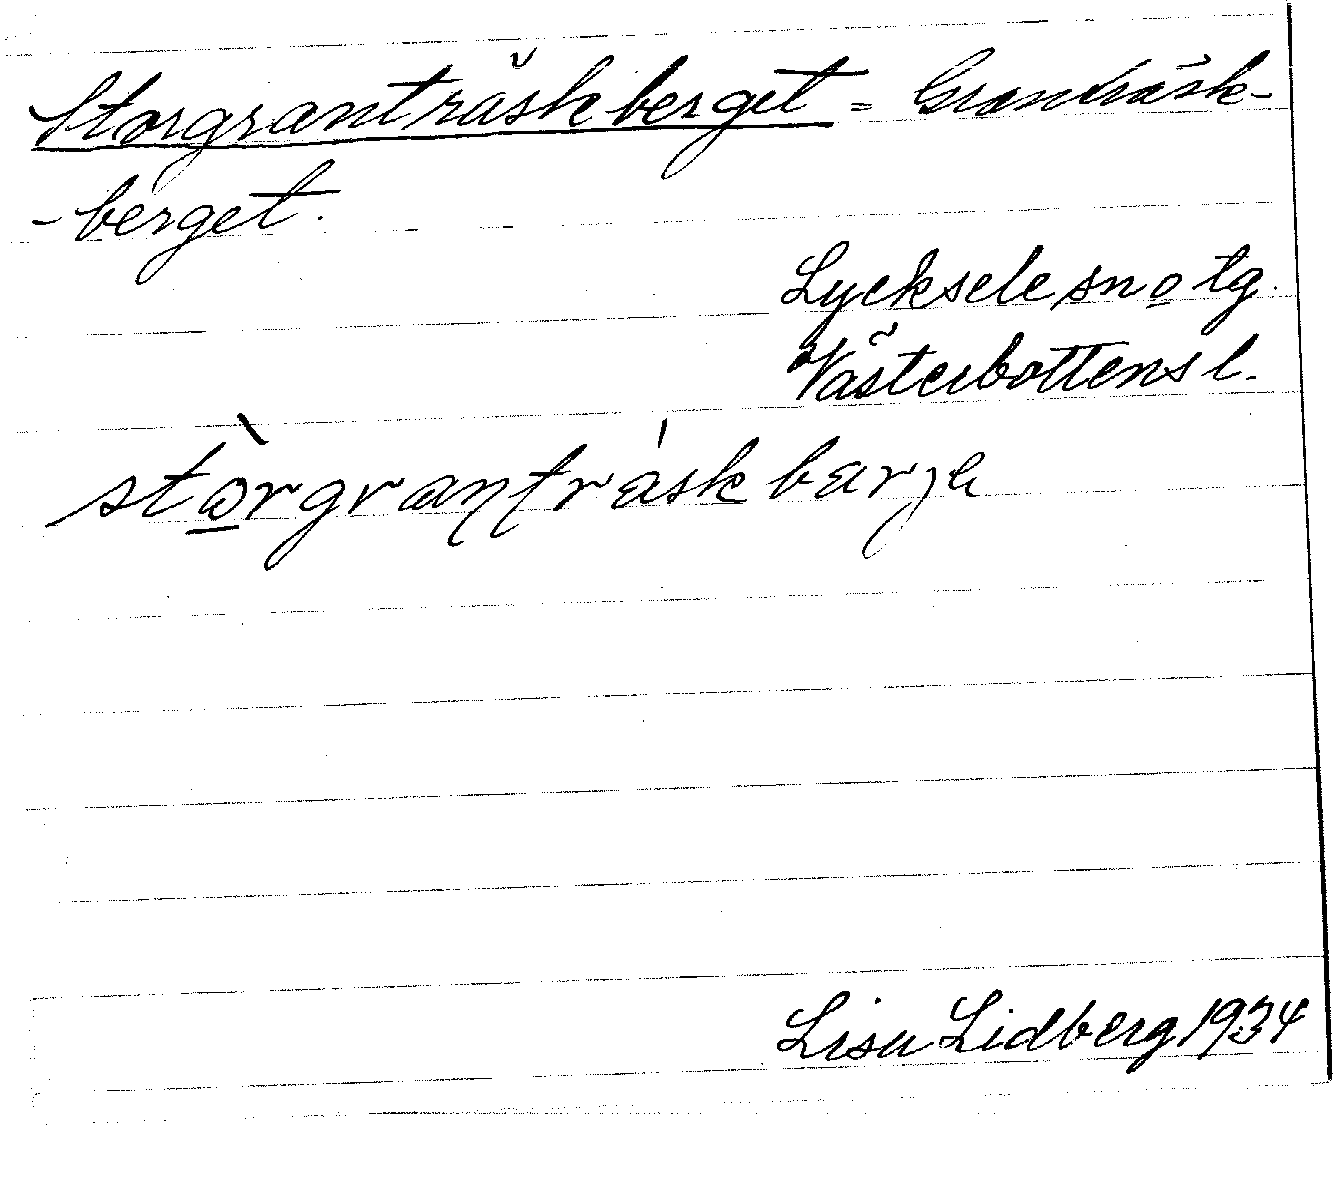 Storgranträskberget = Granträsk-
-berget.
Lycksele sn o tg.
Västerbottens l.
stò̱rgranträ́skbarje
Lisa Lidberg 1934